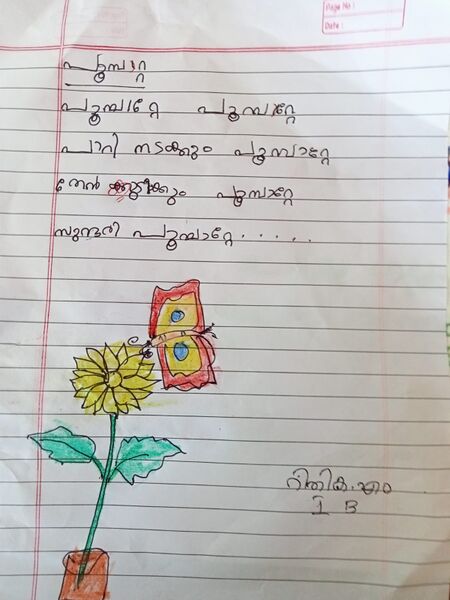 Page No :
Date :
പൂമ്പാറ്റ
പൂമ്പാറ്റേ പൂമ്പാറ്റേ
പാറി നടക്കും പൂമ്പാറ്റേ
തേൻ കുടിക്കും പൂമ്പാറ്റേ
സുന്ദരി പൂമ്പാറ്റേ . . . . .
റിതിക. എം
I B